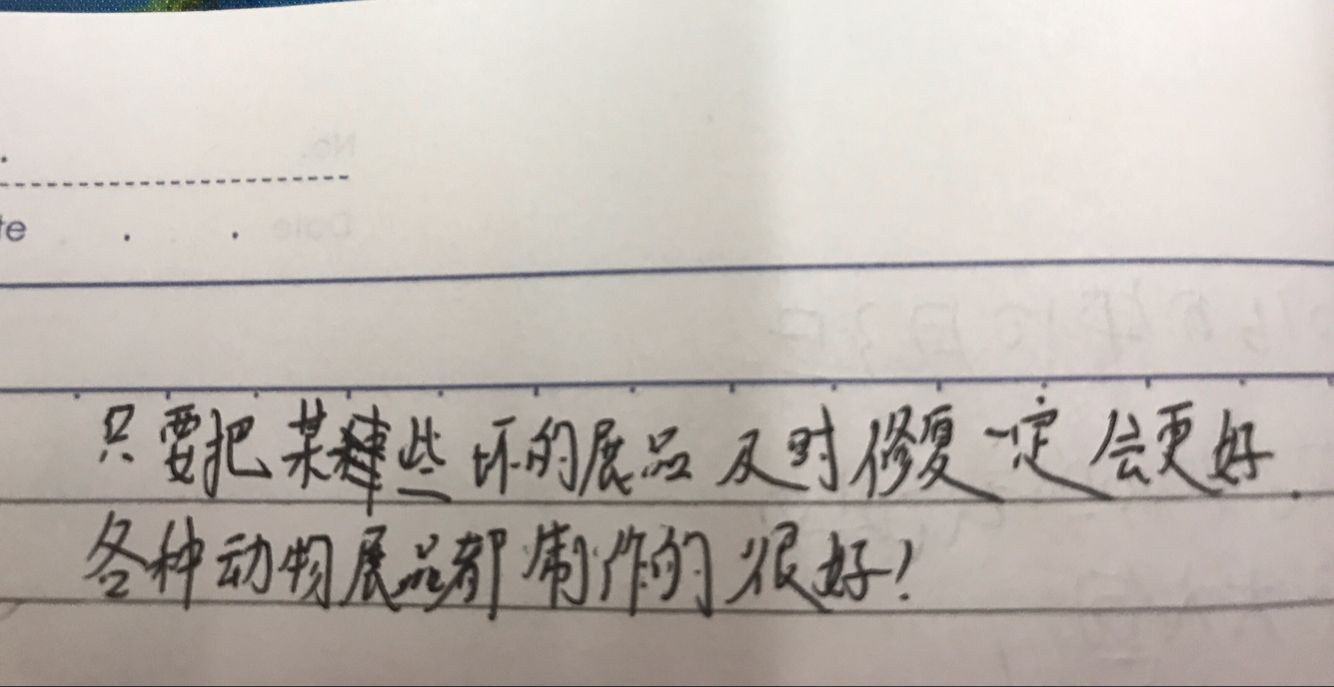 te
只要把某些坏的展品及时修复一定会更好.
各种动物展品都制作的很好!